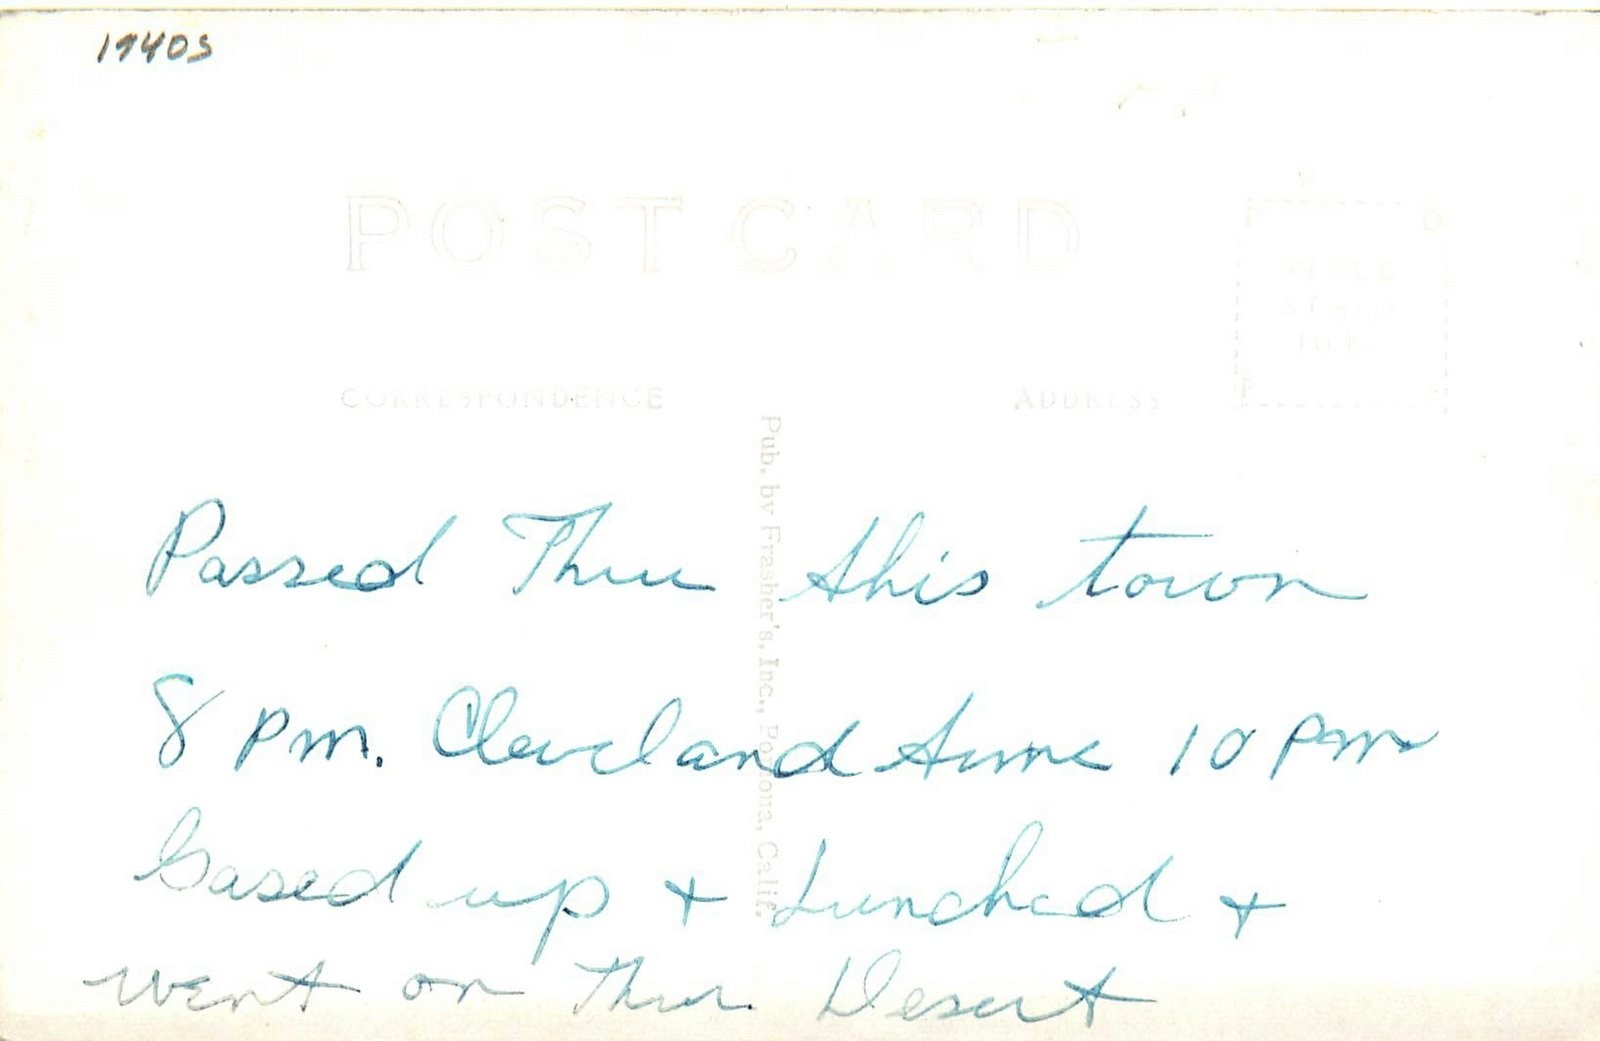 1940s
POST CARD
PLACE
STAMP
HERE
CORRESPONDENCE
ADDRESS
Pub. by Frasher's, Inc., Pomona, Calif.
Passed Thru this town
8 pm. Cleveland time 10 pm
Gased up + Lunched +
went on Thru Desert